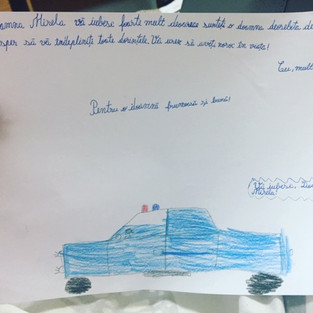 Doamna Mirela vă iubesc foarte mult deoarece sunteți o doamnă deosebită
sper să vă îndepliniți toate dorințele. Vă urez să aveți noroc în viață!
Cu, mult
Pentru o doamnă frumoasă și bună!
Vă iubesc,
Mirela!